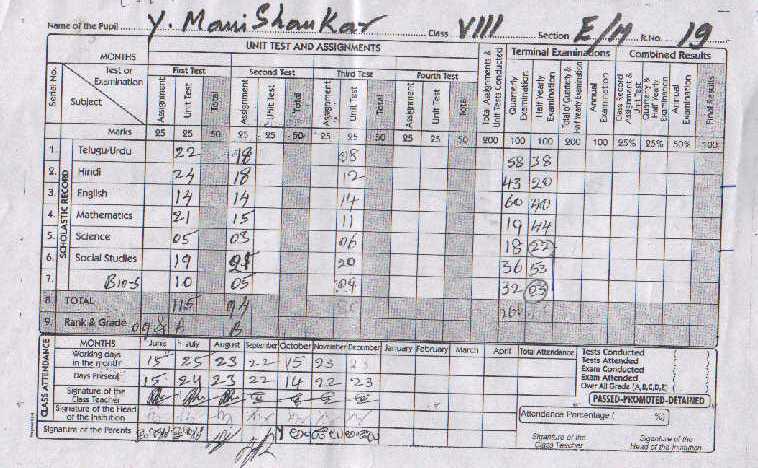 Name of the Pupil Y. Mani Shankar Class VIII Section E/M R.No. 19
UNIT TEST AND ASSIGNMENTS Total Assignments & Unit Tests Conducted Terminal Examinations Combined Results
MONTHS
Serial No. Test or Examination Subject First Test Second Test Third Test Fourth Test
Assignment Unit Test Total Assignment Unit Test Total Assignment Unit Test Total Assignment Unit Test Total Quarterly Examination Half Yearly Examination Total of Quarterly & Half Yearly Examination Annual Examination Class Record Assignment & Unit Test Quarterly & Half Yearly Examination Annual Examination Final Results
Marks 25 25 50 25 25 50 25 25 50 25 25 50 200 100 100 200 100 25% 25% 50% 100
SCHOLASTIC RECORD
1. Telugu/Urdu 22 18 08 58 38
2. Hindi 24 18 12 43 20
3. English 14 14 14 60
4. Mathematics 21 15 11 19 44
5. Science 05 03 06 18 22
6. Social Studies 19 20 36 53
7. Bio-S 10 05 04 32 03
8. TOTAL 115 94
9. Rank & Grade A B
CLASS ATTENDANCE
MONTHS June July August September October November December January February March April Total Attendance Tests Conducted
Working days in the month 15 25 23 22 15 23 Tests Attended
Exam Conducted
Days Present 15 24 23 22 14 22 23 Exam Attended
Over All Grade (A,B,C,D,E)
Signature of the Class Teacher PASSED-PROMOTED-DETAINED
Signature of the Head of the Institution Attendance Percentage ( %)
Signature of the Parents Signature of the Class Teacher Signature of the Head of the Institution